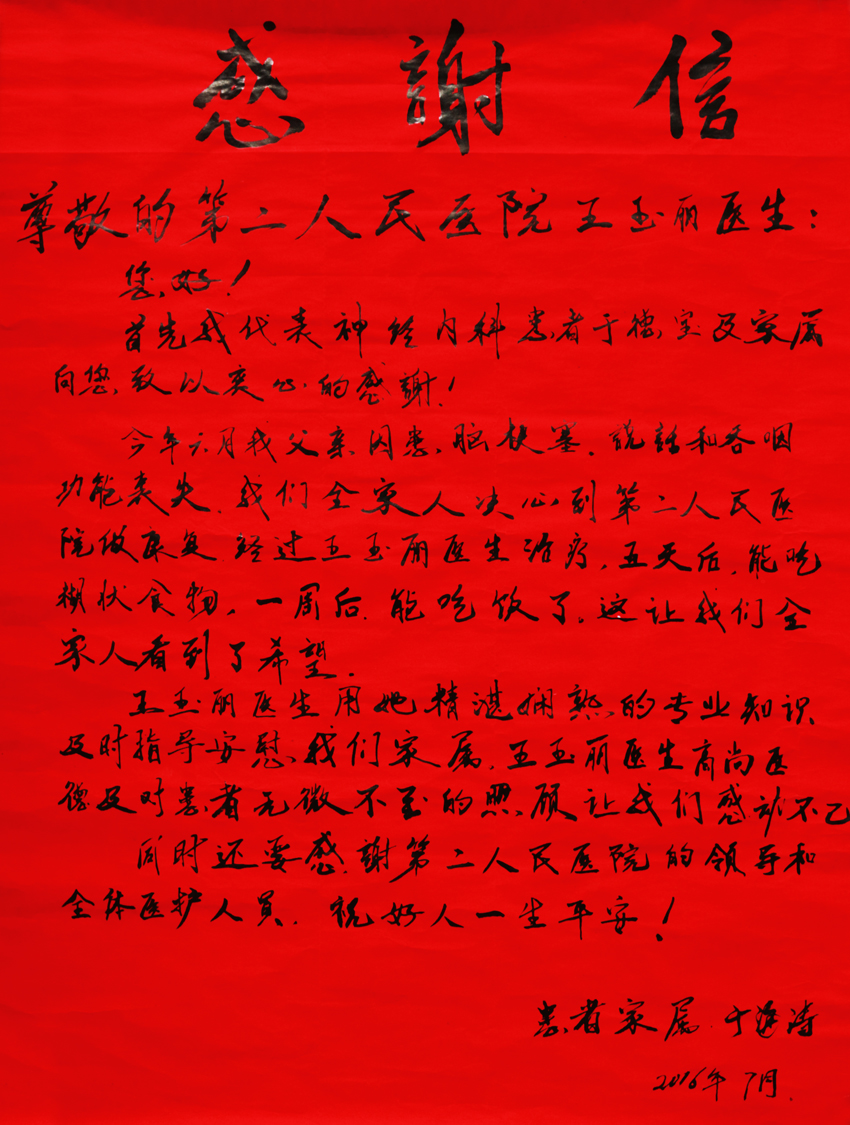 感謝信
尊敬的第二人民医院王玉丽医生：
您好！
首先我代表神经内科患者于德宝及家属
向您致以衷心的感謝！
今年六月我父亲因患脑梗塞，說話和吞咽
功能丧失，我们全家人决心到第二人民医
院做康复，经过王玉丽医生治疗，五天后，能吃
糊状食物，一周后，能吃饭了，这让我们全
家人看到了希望。
王玉丽医生用她精湛娴熟的专业知识
及时指导安慰我们家属，王玉丽医生高尚医
德及对患者无微不至的照顾让我们感激不已
同时还要感謝第二人民医院的领导和
全体医护人员，祝好人一生平安！
患者家属 于海涛
2016年7月